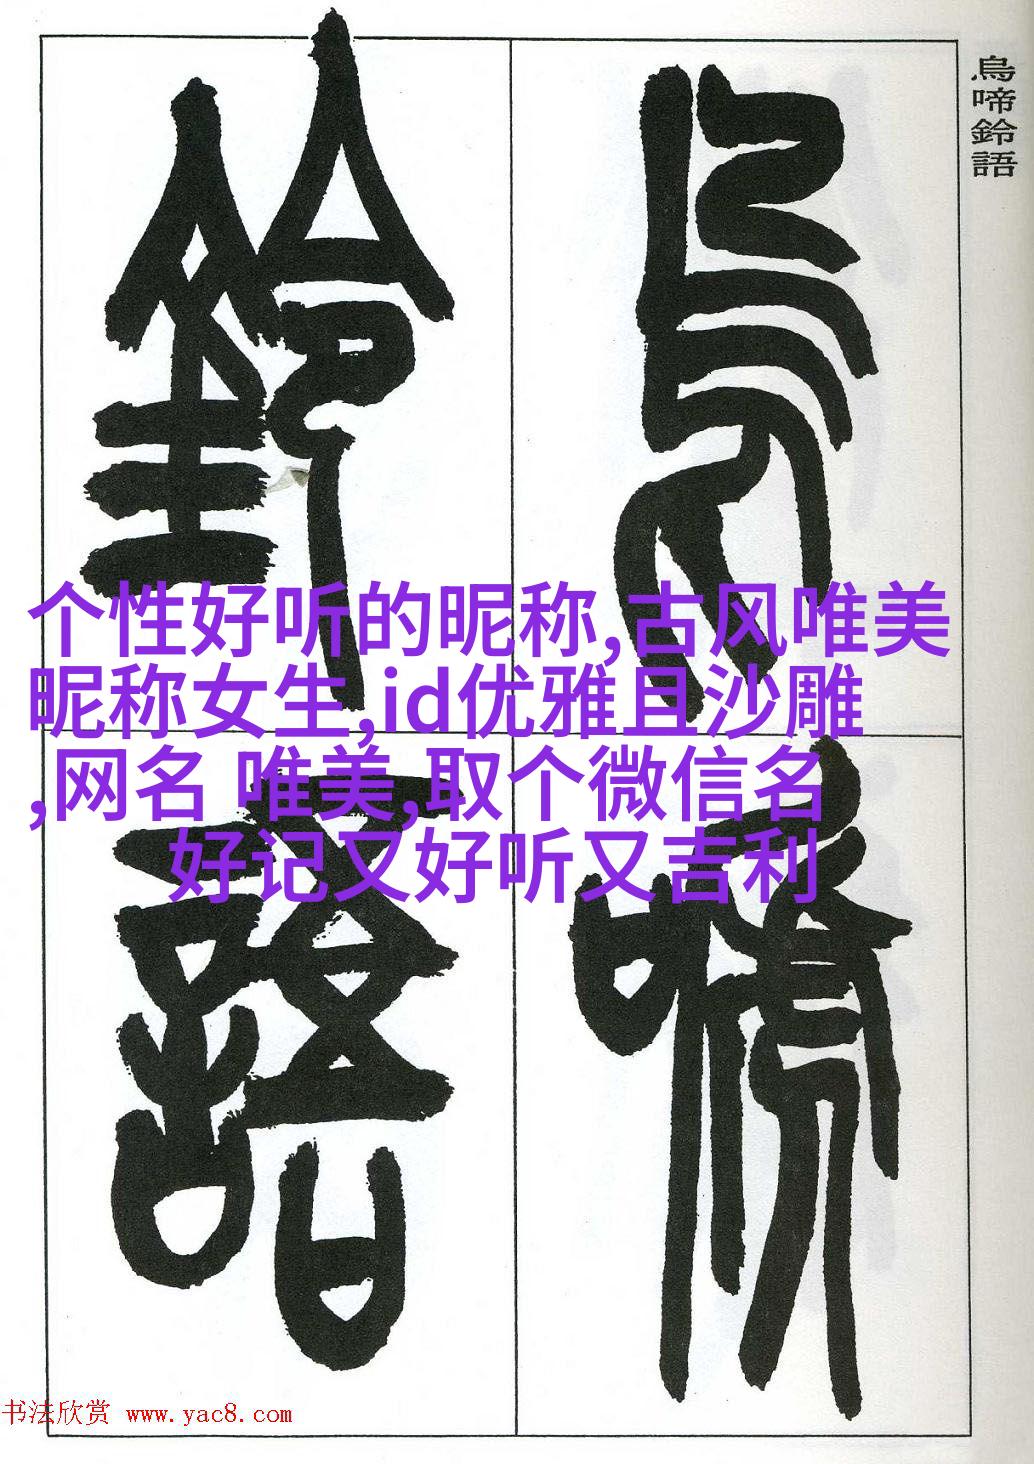 鳥啼鈴語
鳥
啼
鈴
語
个性好听的昵称,古风唯美
昵称女生,id优雅且沙雕
,网名 唯美,取个微信名
好记又好听又吉利
书法欣赏 www.yac8.com